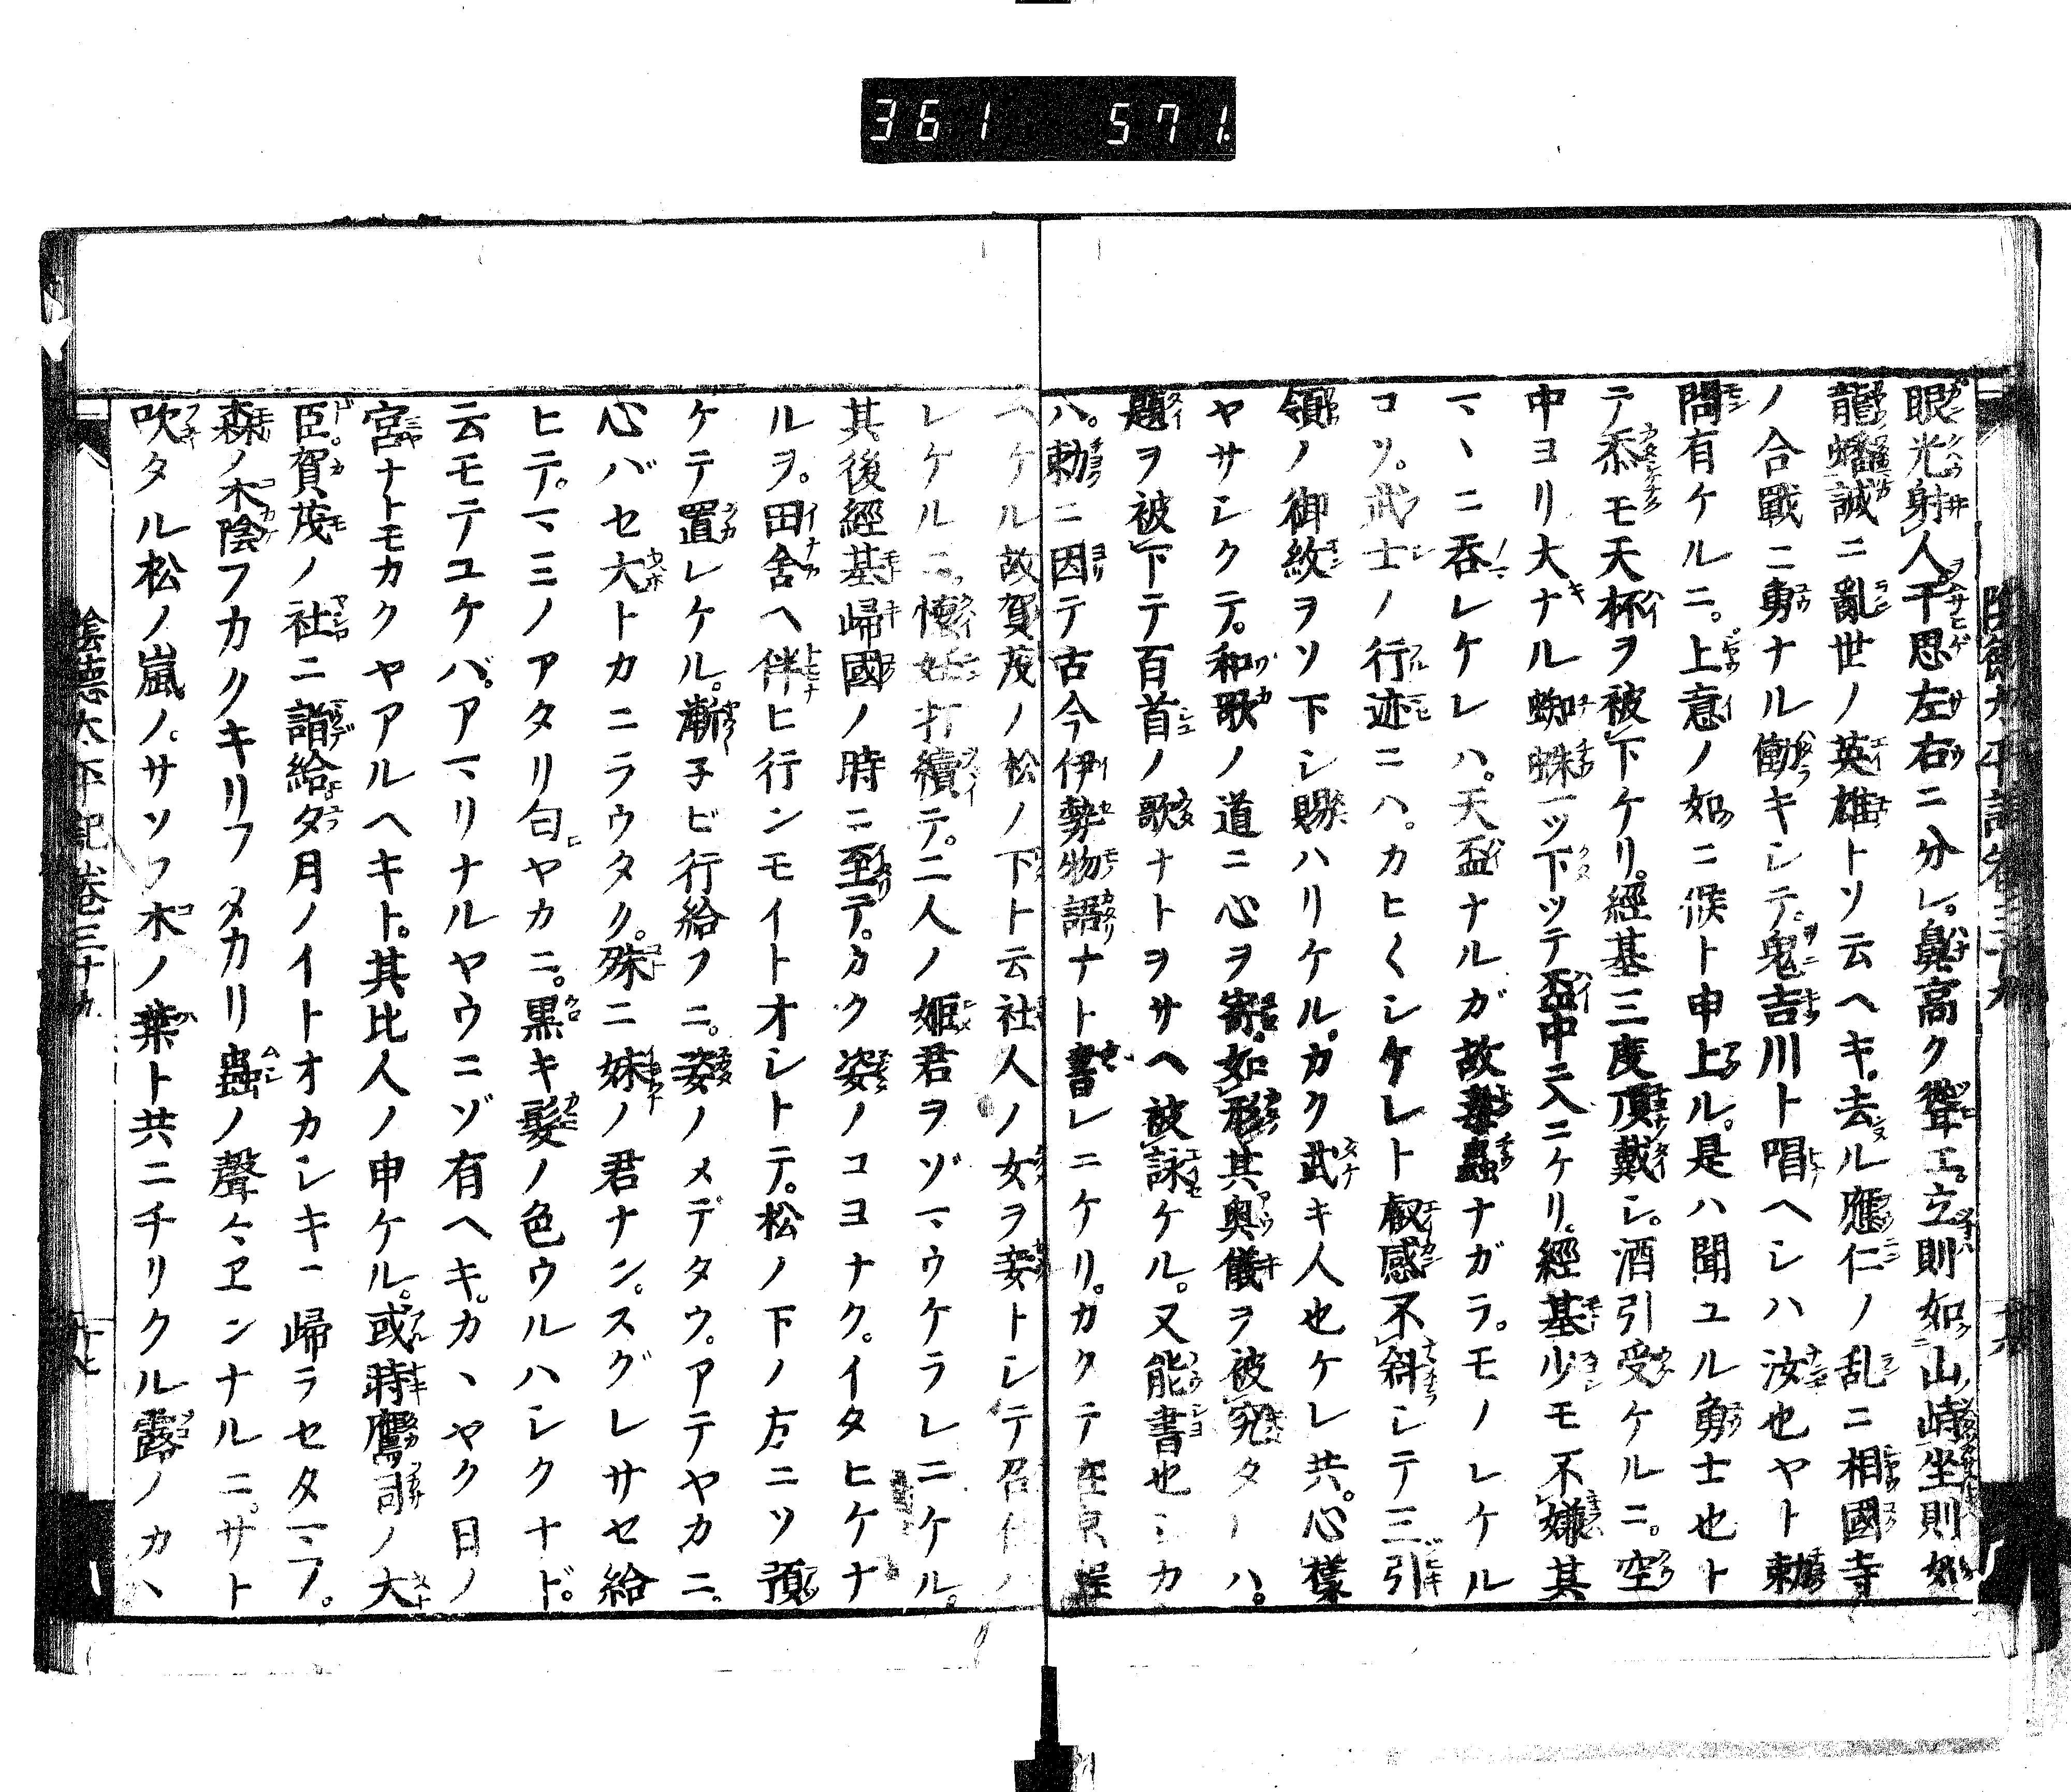 361 571
陰德太平記卷三十九 十六
眼光射人于思左右ニ分レ。鼻高ク聳エ。立則如山峙坐則如
龍蟠誠ニ亂世ノ英雄トソ云ヘキ。去ル應仁ノ乱ニ相國寺
ノ合戰ニ勇ナル働キシテ。鬼吉川ト唱ヘシハ汝也ヤト勅
問有ケルニ。上意ノ如ニ候ト申上ル。是ハ聞ユル勇士也ト
テ忝モ天杯ヲ被下ケリ。經基三度頂戴シ。酒引受ケルニ。空
中ヨリ大ナル蜘蛛一ツ下ツテ盃中ニ入ニケリ。經基少モ不嫌其
マヽニ呑レケレハ。天盃ナルガ故毒蟲ナガラ。モノレケル
コソ。武士ノ行迹ニハ。カヒ〳〵シケレト叡感不斜シテ三引
領ノ御紋ヲソ下シ賜ハリケル。カク武キ人也ケレ共。心樣
ヤサシクテ。和歌ノ道ニ心ヲ寄。如形其奥儀ヲ被究タレハ。
題ヲ被下テ百首ノ歌ナトヲサヘ被詠ケル。又能書也シカ
ハ。勅ニ因テ古今伊勢物語ナト書レニケリ。カクテ在京程
ヘケル故賀茂ノ松ノ下ト云社人ノ女ヲ妾トシテ召仕ハ
レケルニ。懐妊打續テ。二人ノ姫君ヲゾマウケラレニケル。
其後經基歸國ノ時ニ至テ。カク姿ノコヨナク。イタヒケナ
ルヲ。田舎ヘ伴ヒ行ンモイトオシトテ。松ノ下ノ方ニソ預
ケテ置レケル。漸子ビ行給フニ。姿ノメデタウ。アテヤカニ。
心バセ大トカニラウタク。殊ニ妹ノ君ナン。スグレサセ給
ヒテ。マミノアタリ匂ヤカニ。黒キ髪ノ色ウルハシクナド。
云モテユケバ。アマリナルヤウニゾ有ヘキ。カヽヤク日ノ
宮ナトモカクヤアルヘキト。其比人ノ申ケル。或時鷹司ノ大
臣。賀茂ノ社ニ詣給夕月ノイトオカシキニ歸ラセタマフ。
森ノ木陰フカクキリフタカリ蟲ノ聲々エンナルニ。サト
吹タル松ノ嵐ノ。サソフ木ノ葉ト共ニチリクル露ノカヽ
陰德太平記卷三十九 十七